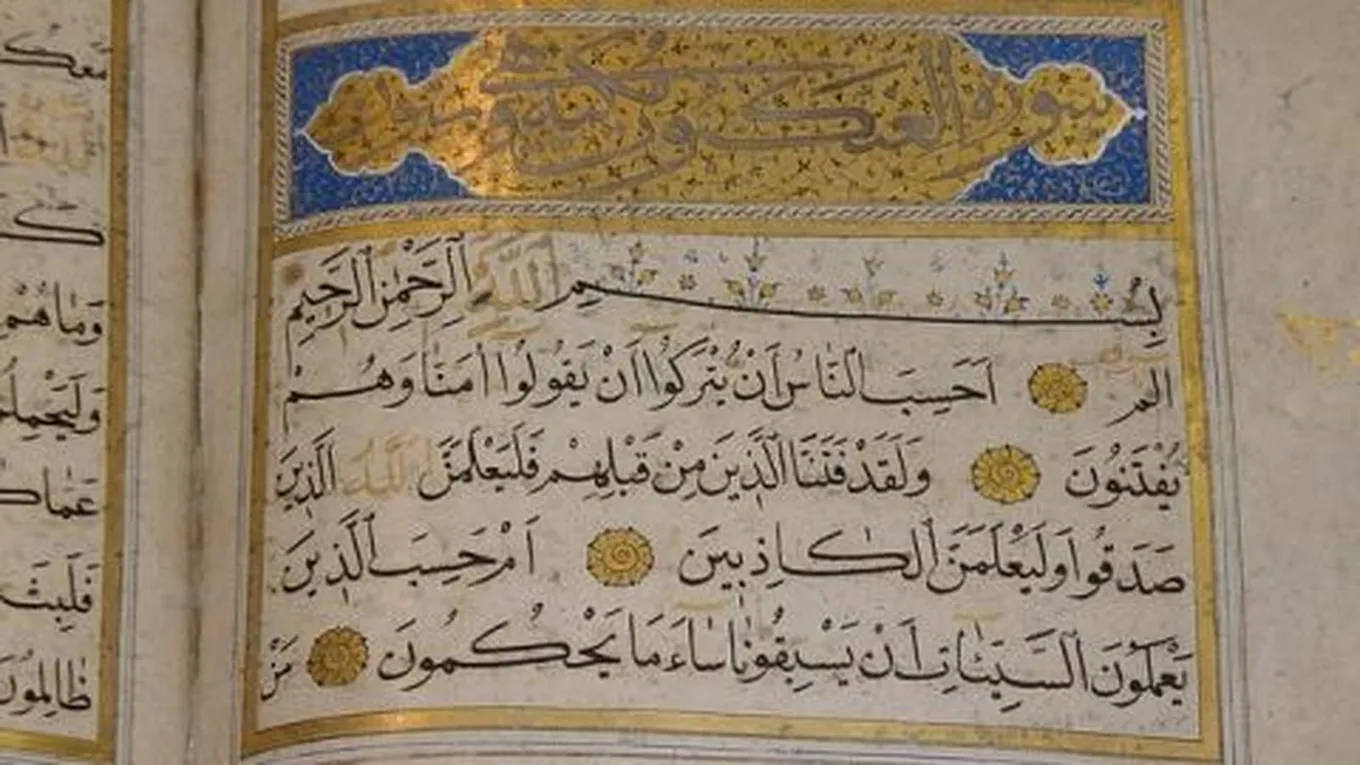 سورة العنكبوت
بِسْمِ اللّٰهِ الرَّحْمٰنِ الرَّحِيمِ
الم اَحَسِبَ النَّاسُ اَنْ يُتْرَكُوا اَنْ يَقُولُوا اٰمَنَّا وَهُمْ
يُفْتَنُونَ وَلَقَدْ فَتَنَّا الَّذِينَ مِنْ قَبْلِهِمْ فَلَيَعْلَمَنَّ اللّٰهُ الَّذِينَ
صَدَقُوا وَلَيَعْلَمَنَّ الْكَاذِبِينَ اَمْ حَسِبَ الَّذِينَ
يَعْمَلُونَ السَّيِّئَاتِ اَنْ يَسْبِقُونَا سَاءَ مَا يَحْكُمُونَ مَنْ
وَمَا هُمْ
فَلَبِثَ
ظَالِمُونَ